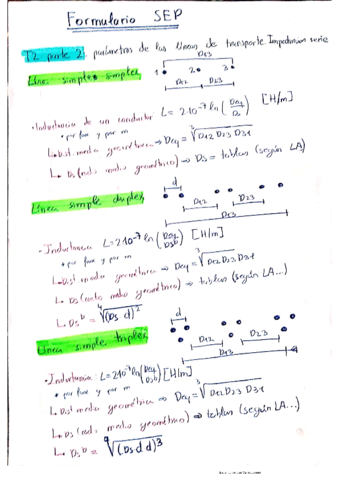 Formulario SEP
T2 parte 2 parámetros de las líneas de transporte Impedancia serie
Línea simple simplex
D13
1 2 3
D12 D23
• Inductancia de un conductor L = 2·10⁻⁷ ln (Deq/Ds) [H/m]
• por fase y por m
↳ Dist. media geométrica ⇒ Deq = ∛D12 D23 D31
↳ Ds (radio medio geométrico) ⇒ Ds = tablas (según LA)
Línea simple duplex
d
D12 D23
D13
• Inductancia L = 2·10⁻⁷ ln (Deq/Dsb) [H/m]
• por fase y por m
↳ Dist media geométrica ⇒ Deq = ∛D12 D23 D31
↳ Ds (radio medio geométrico) ⇒ tablas (según LA...)
↳ Dsᵇ = ∜(Ds d)²
Línea simple triplex
d
D12 D23
D13
• Inductancia: L = 2·10⁻⁷ ln (Deq/Dsb) [H/m]
• por fase y por m
↳ Dist media geométrica ⇒ Deq = ∛D12 D23 D31
↳ Ds (radio medio geométrico) ⇒ tablas (según LA...)
↳ Dsᵇ = ⁹√(Ds d d)³